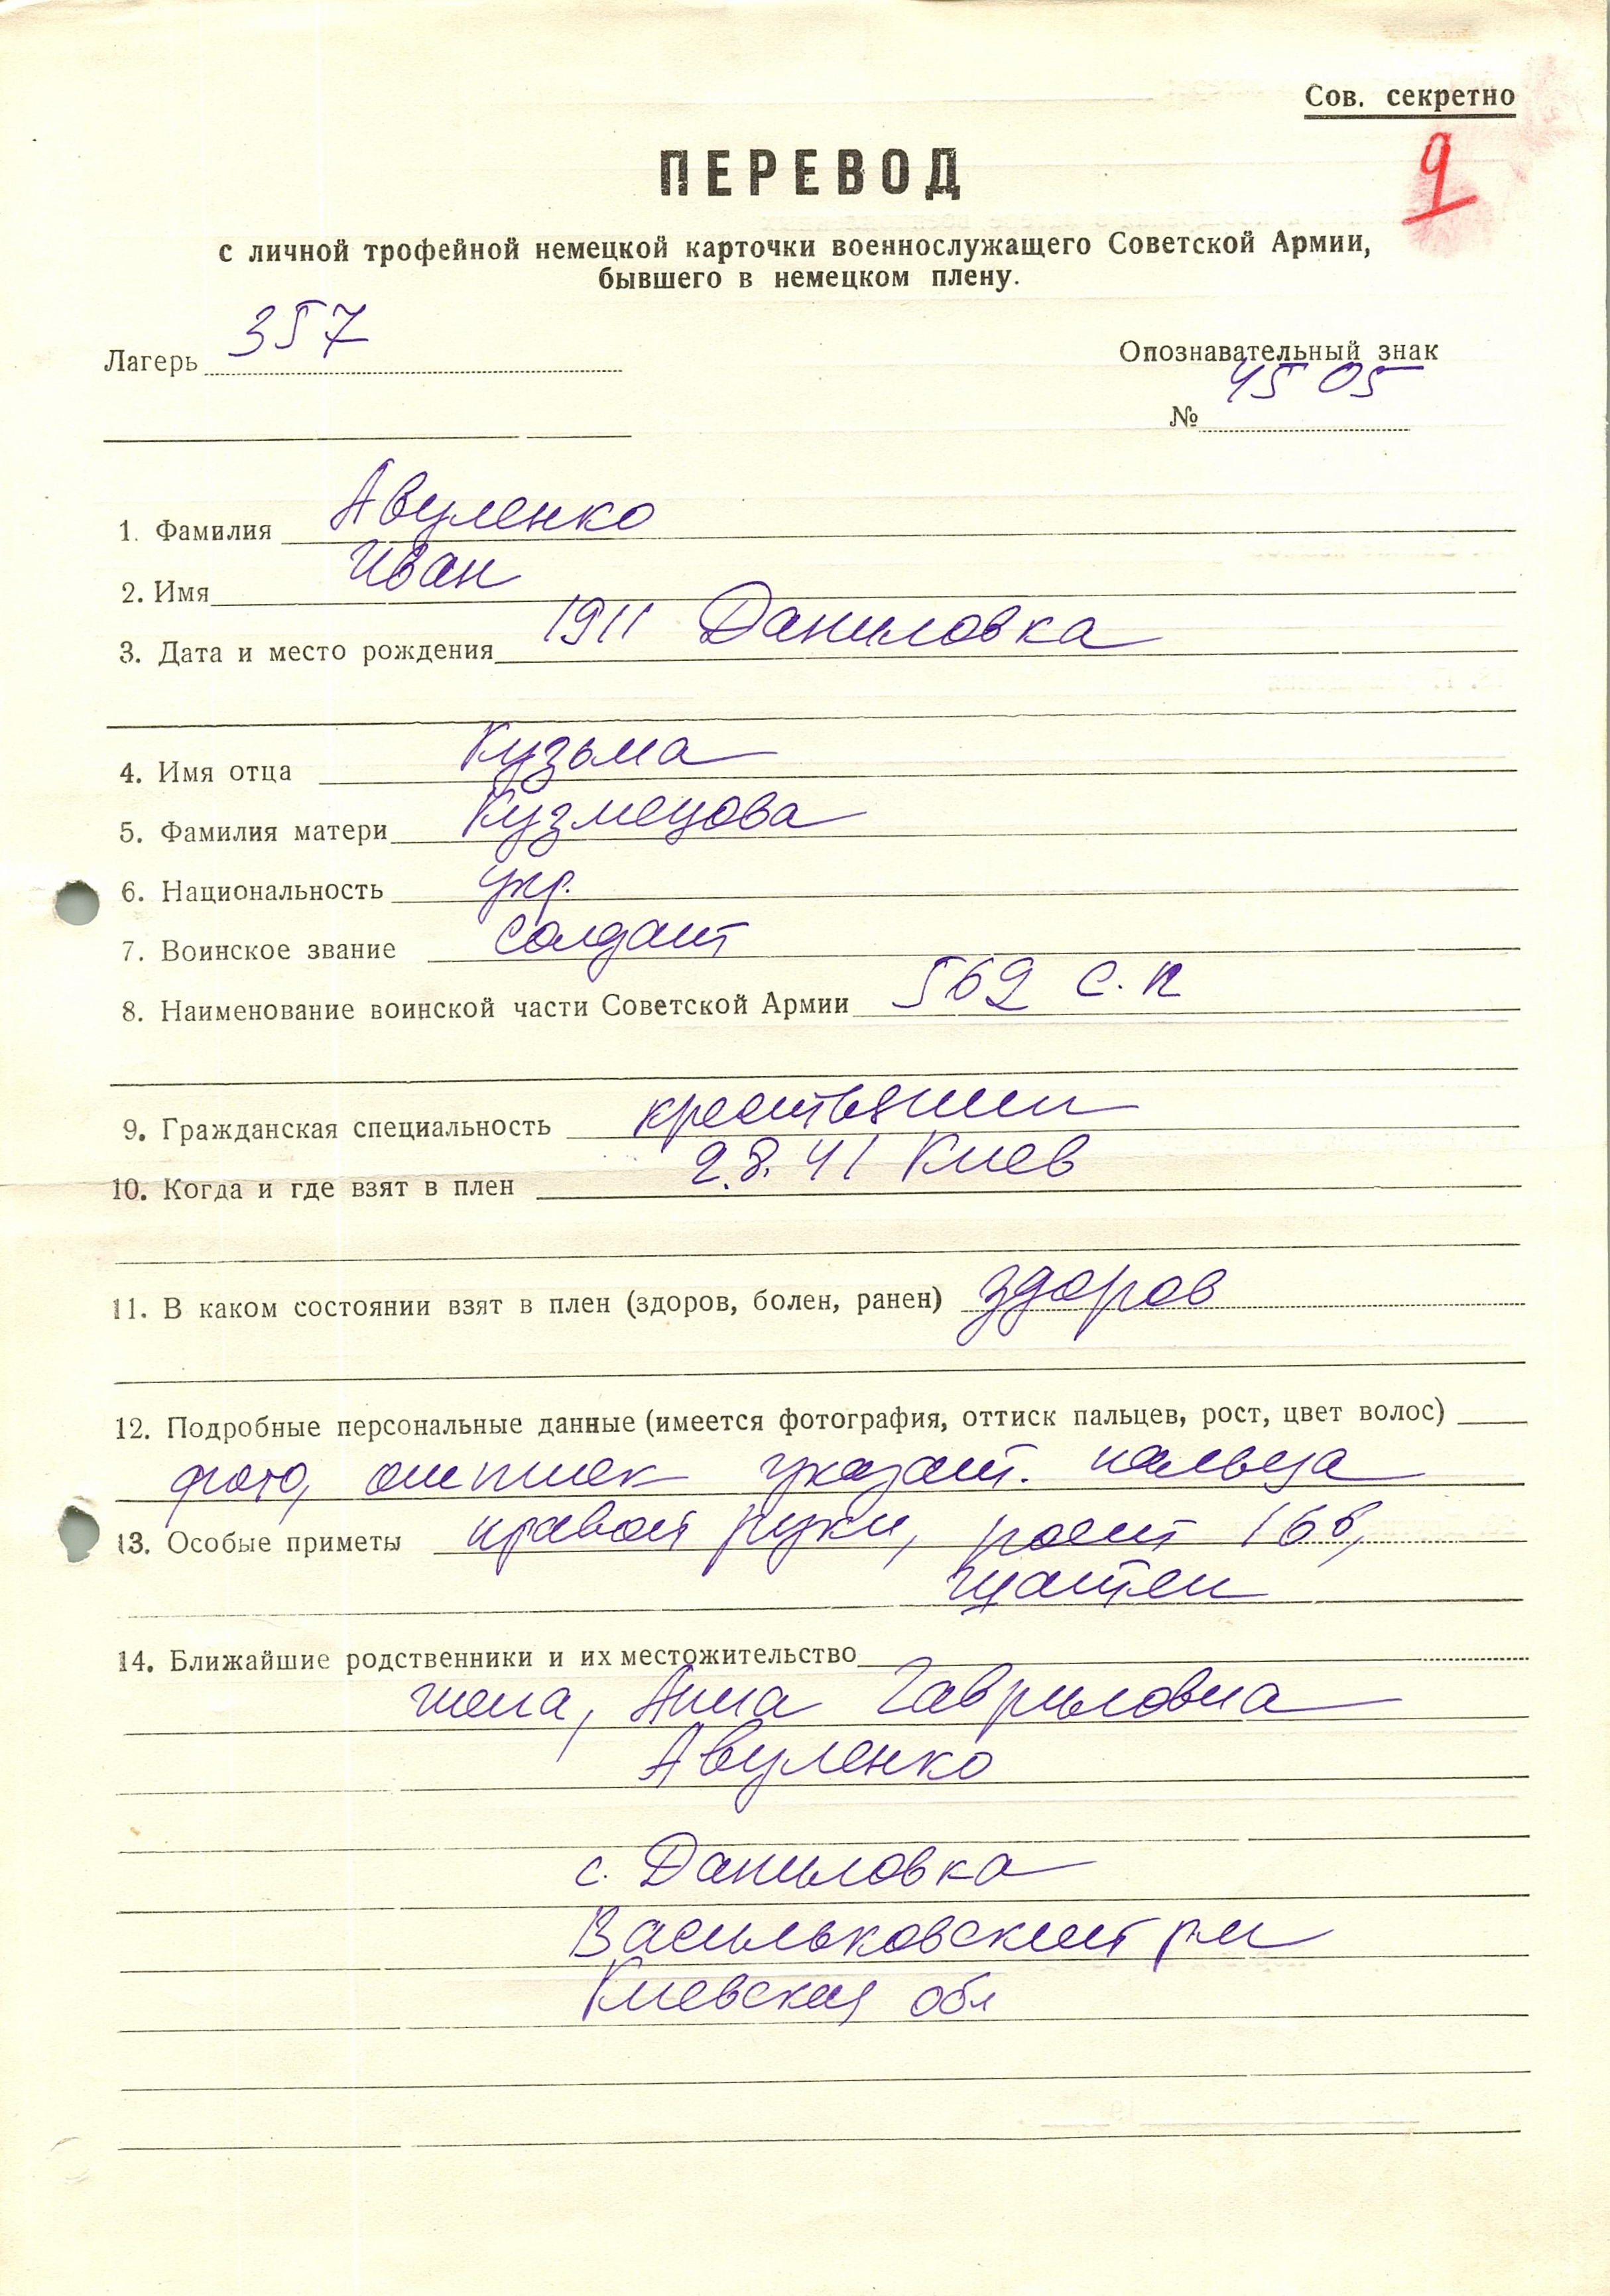 Сов. секретно
9
ПЕРЕВОД
с личной трофейной немецкой карточки военнослужащего Советской Армии,
бывшего в немецком плену.
Лагерь 357
Опознавательный знак
№ 4505
1. Фамилия Авуленко
2. Имя Иван
3. Дата и место рождения 1911 Даниловка
4. Имя отца Кузьма
5. Фамилия матери Кузмецова
6. Национальность укр.
7. Воинское звание солдат
8. Наименование воинской части Советской Армии 569 с.п
9. Гражданская специальность крестьянин
10. Когда и где взят в плен 2.8.41 Киев
11. В каком состоянии взят в плен (здоров, болен, ранен) здоров
12. Подробные персональные данные (имеется фотография, оттиск пальцев, рост, цвет волос)
фото, оттиск указат. пальца
13. Особые приметы правой руки, рост 166,
шатен
14. Ближайшие родственники и их местожительство
жена, Анна Гавриловна
Авуленко
с. Даниловка
Васильковский р-н
Киевская обл